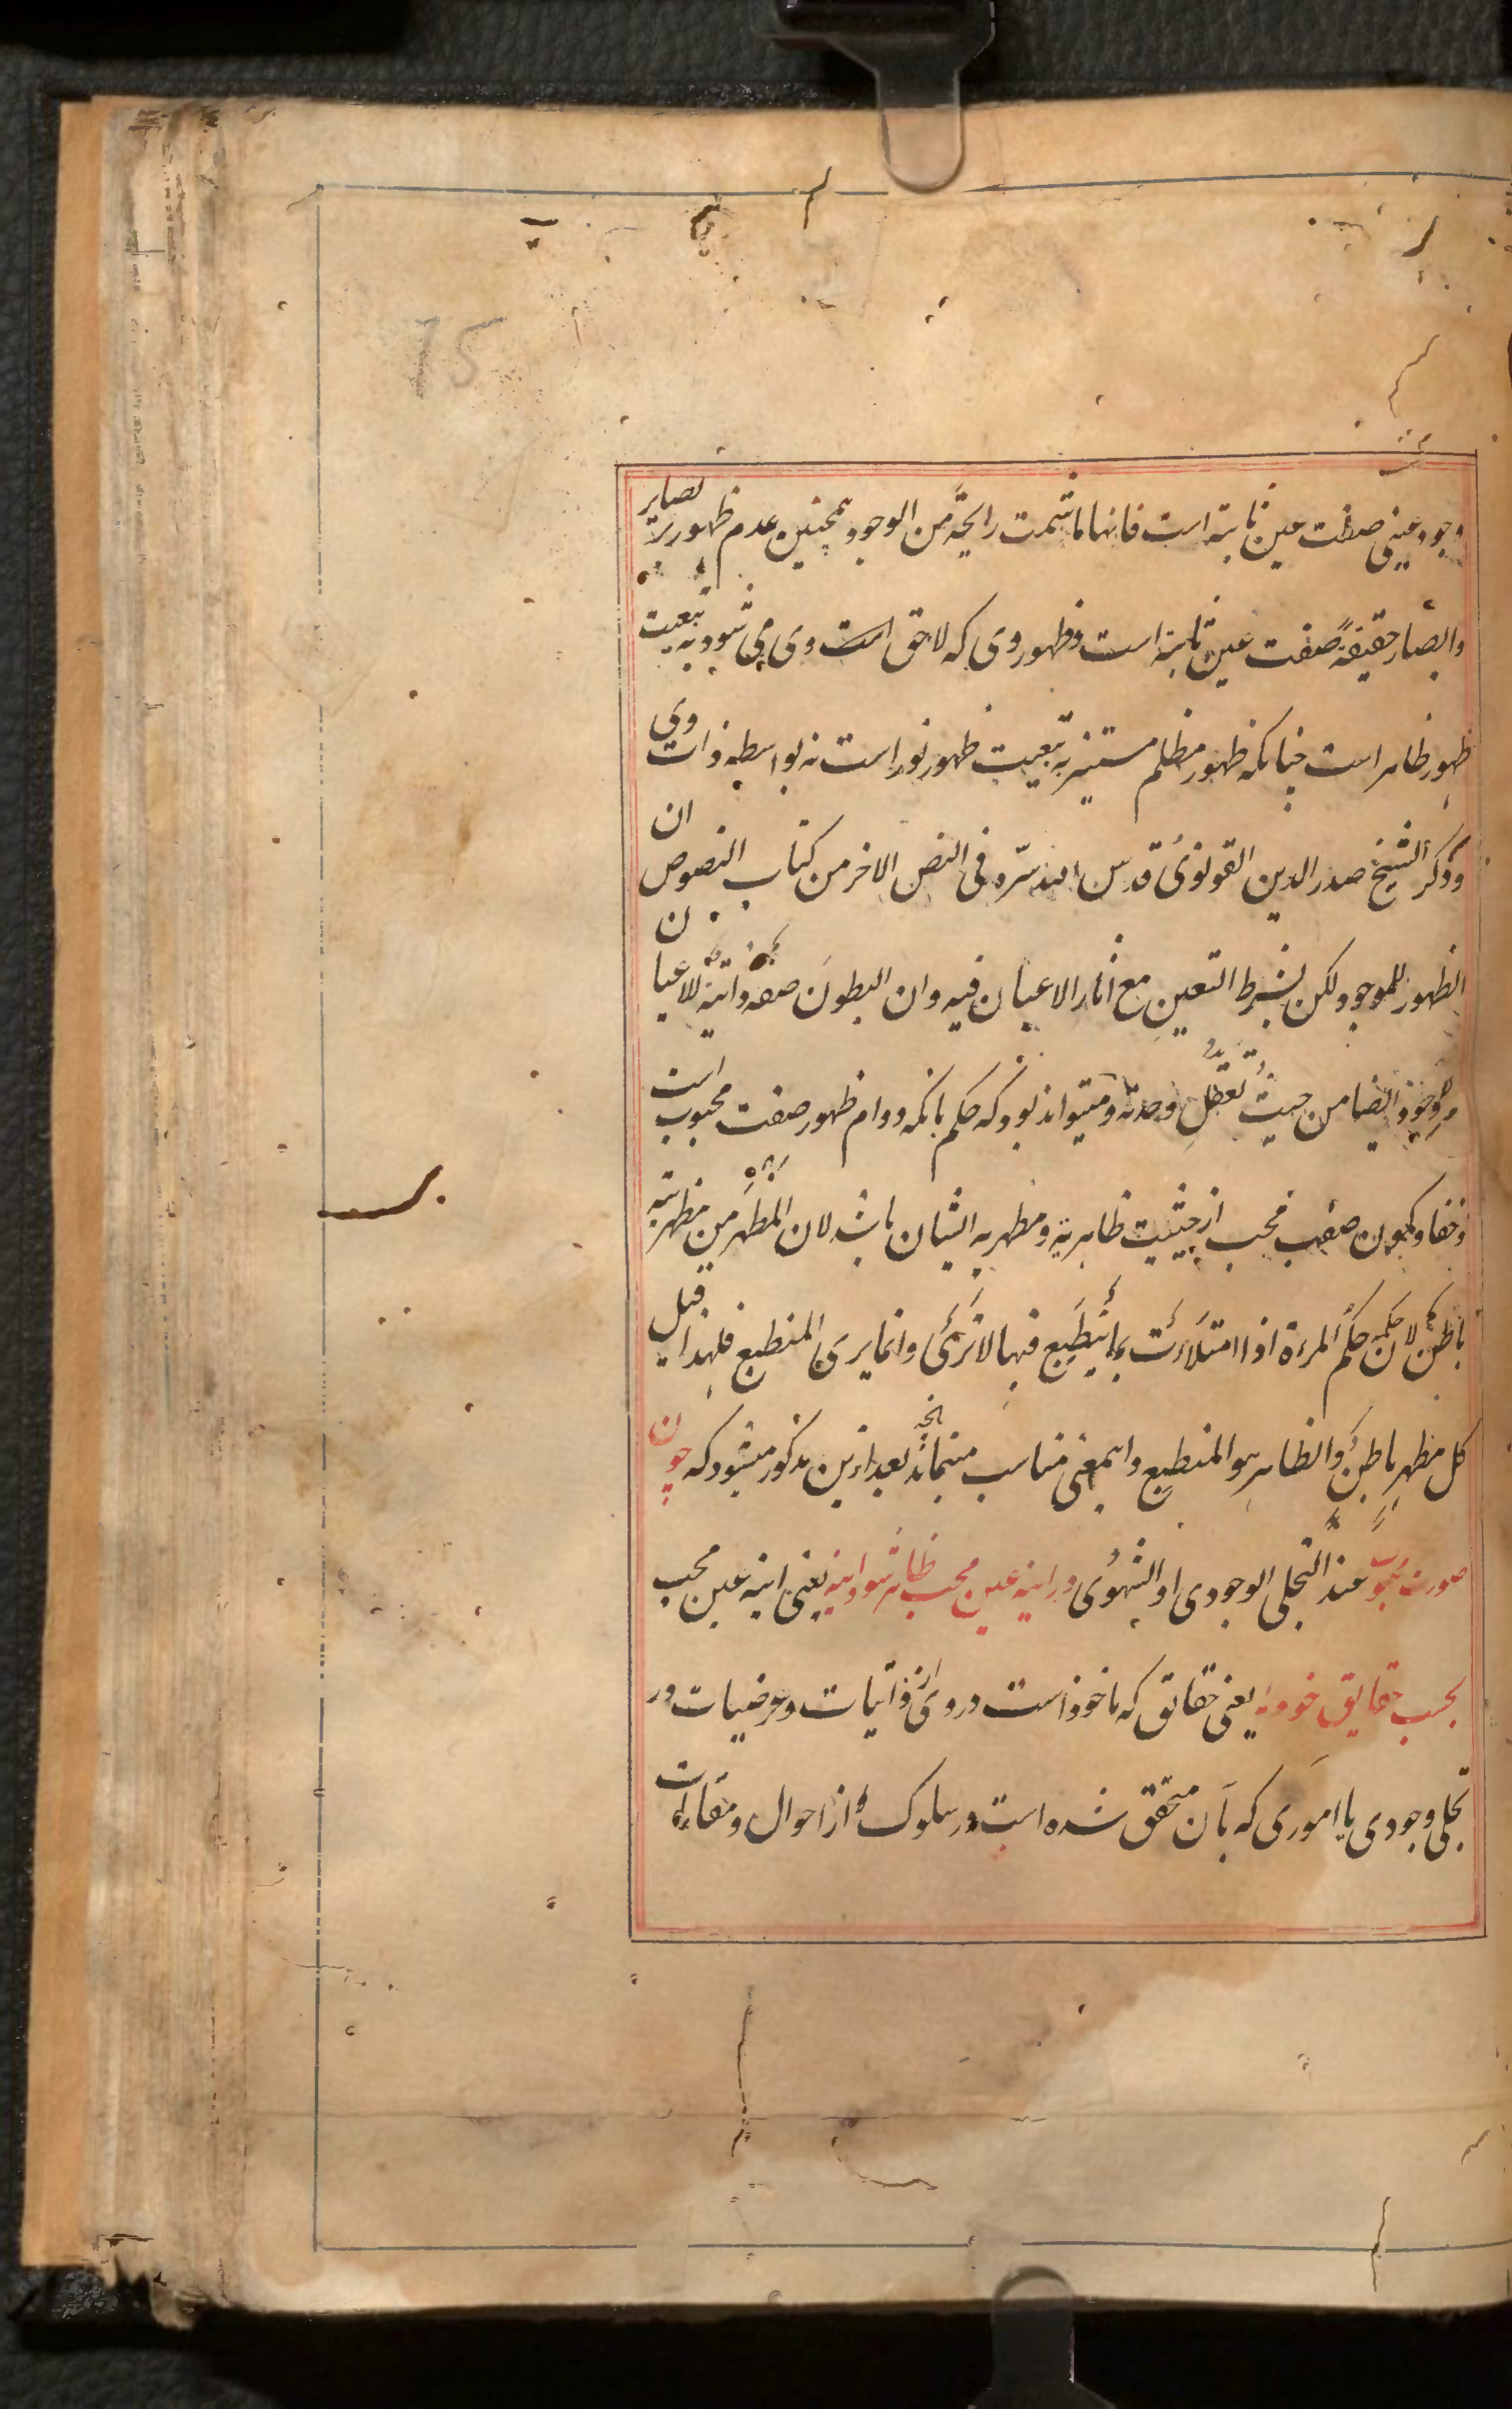 75
وجود عینی صفت عین ثابته است فانها ما شمت رایحة من الوجود همچنین عدم ظهور بر بصایر
و ابصار حقیقةً صفت عین ثابته است و ظهور وی که لاحق است وی می شود به تبعیت
ظهور ظاهر است چنانکه ظهور مظلم مستنیر به تبعیت ظهور نور است نه بواسطه ذات وی
و ذکر الشیخ صدر الدین القونوی قدس الله سرّه فی النص الاخر من کتاب النصوص ان
الظهور للموجود لکن بشرط التعین مع اثار الاعیان فیه و ان البطون صفة ذاتیة للاعیان
وللوجود ایضا من حیث تعقل وحدته و میتواند بود که حکم بانکه دوام ظهور صفت محبوب است
و خفا و کمون صفت محب از حیثیت ظاهریة و مظهریه ایشان باشد لان المظهر من مظهریته
باطن لان حکمه حکم المرءة اذا امتلاءت بما ینطبع فیها لا ترئ و انما یری المنطبع فلهذا قیل
کل مظهر باطن و الظاهر هو المنطبع و اینمعنی مناسب مینماید بعد ازین مذکور میشود که چون
صورت محبوب عند التجلی الوجودی او الشهودی در اینه عین محب ظاهر شود اینه یعنی اینه عین محب
بحسب حقایق خود یعنی حقایق که ماخوذ است در وی از ذاتیات و عرضیات در
تجلی وجودی یا اموری که بآن متحقق شده است در سلوک از احوال و مقامات